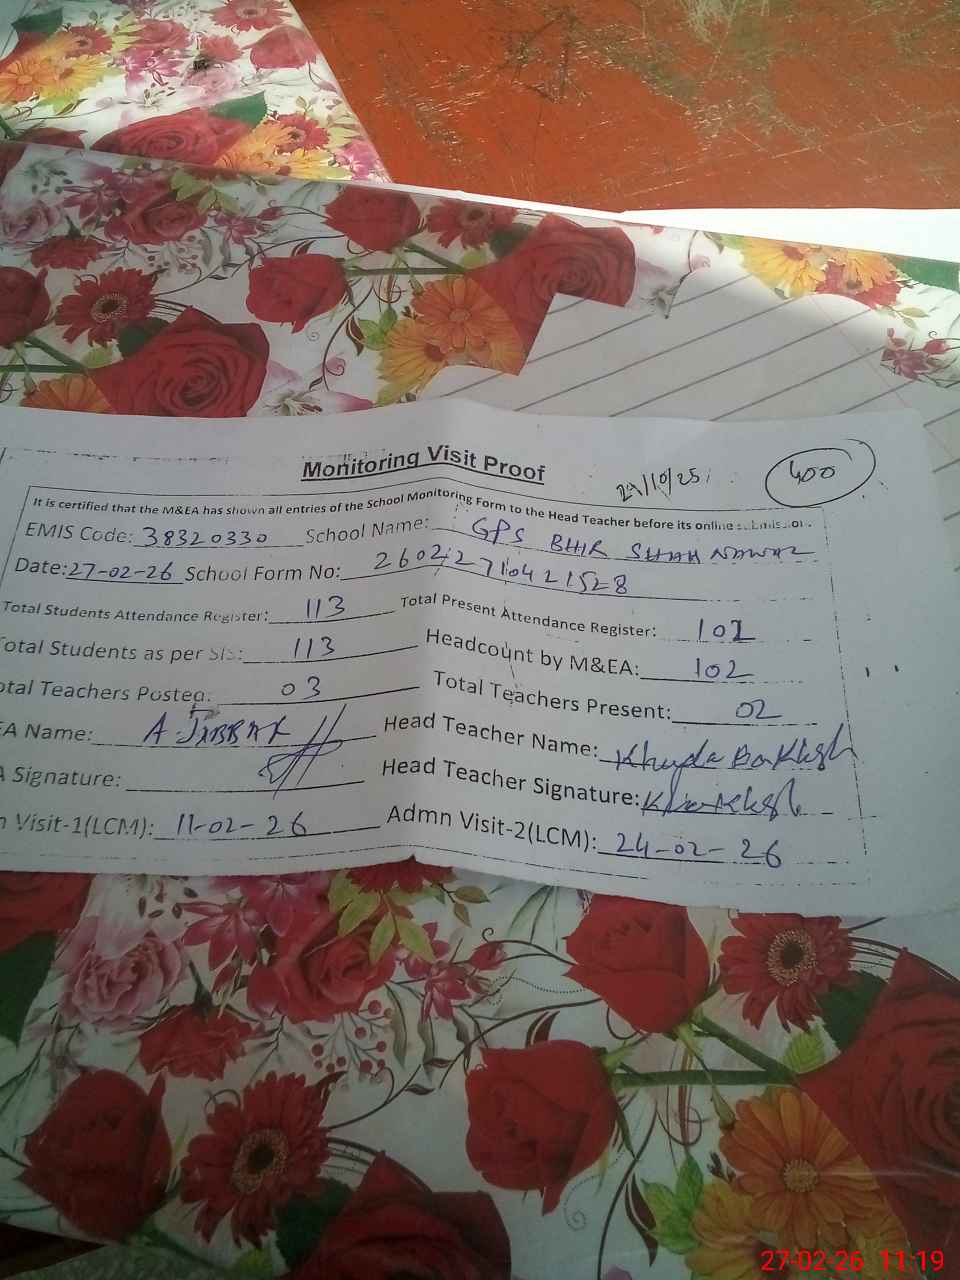 Monitoring Visit Proof
29/10/25
400
It is certified that the M&EA has shown all entries of the School Monitoring Form to the Head Teacher before its online submission.
EMIS Code: 38320330 School Name: GPS BHIR SHAH NAWAZ
Date: 27-02-26 School Form No: 26022710421528
Total Students Attendance Register: 113 Total Present Attendance Register: 102
Total Students as per SIS: 113 Headcount by M&EA: 102
otal Teachers Posted: 03 Total Teachers Present: 02
EA Name: A-JABBAR Head Teacher Name: Khuda Bakhsh
A Signature: Head Teacher Signature:
n Visit-1(LCM): 11-02-26 Admn Visit-2(LCM): 24-02-26
27-02-26 11:19